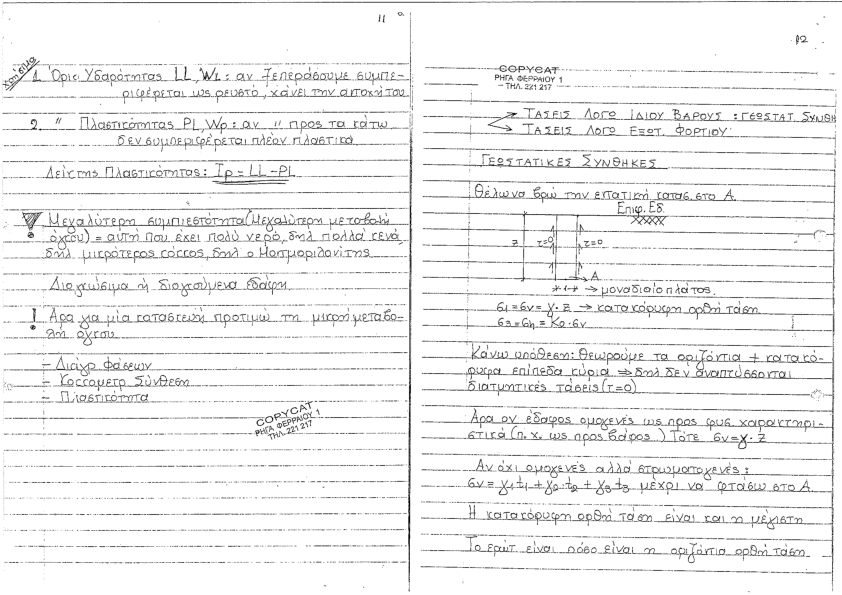 11 α
χρήσιμα
1. Όριο Υδαρότητας LL, WL: αν ξεπεράσουμε συμπε-
ριφέρεται ως ρευστό, χάνει την αντοχή του
2. " Πλαστικότητας PL, Wp: αν " προς τα κάτω
δεν συμπεριφέρεται πλέον πλαστικά
Δείκτης Πλαστικότητας: Ip = LL - PL
! Μεγαλύτερη συμπιεστότητα (Μεγαλύτερη μεταβολή
όγκου) = αυτή που έχει πολύ νερό, δηλ πολλά κενά,
δηλ μικρότερος κόκκος, δηλ ο Μοντμοριλονίτης
Διογκώσιμα ή διογκούμενα εδάφη
! Άρα για μία κατασκευή προτιμώ τη μικρή μεταβο-
λή όγκου
- Διάγρ Φάσεων
- Κοκκομετρ Σύνθεση
- Πλαστικότητα
COPYCAT
ΡΗΓΑ ΦΕΡΡΑΙΟΥ 1
ΤΗΛ. 221 217
12
COPYCAT
ΡΗΓΑ ΦΕΡΡΑΙΟΥ 1
- ΤΗΛ. 221 217
→ ΤΑΣΕΙΣ ΛΟΓΩ ΙΔΙΟΥ ΒΑΡΟΥΣ : ΓΕΩΣΤΑΤ. ΣΥΝΘΗ
→ ΤΑΣΕΙΣ ΛΟΓΩ ΕΞΩΤ. ΦΟΡΤΙΟΥ
ΓΕΩΣΤΑΤΙΚΕΣ ΣΥΝΘΗΚΕΣ
Θέλω να βρω την εντατική κατασ. στο Α.
Επιφ. Εδ.
z τ=0 τ=0
A
→ μοναδιαίο πλάτος
σ1 = σv = γ · z → κατακόρυφη ορθή τάση
σ3 = σh = Κο · σv
Κάνω υπόθεση: Θεωρούμε τα οριζόντια + κατακό-
ρυφα επίπεδα κύρια ⇒ δηλ δεν αναπτύσσονται
διατμητικές τάσεις (τ=0)
Άρα αν έδαφος ομογενές ως προς φυσ. χαρακτηρι-
στικά (π.χ. ως προς βάρος) Τότε σv = γ · z
Αν όχι ομογενές αλλά στρωματογενές:
σv = γ1 t1 + γ2 · t2 + γ3 t3 μέχρι να φτάσω στο Α.
Η κατακόρυφη ορθή τάση είναι και η μέγιστη
Το ερώτ είναι πόσο είναι η οριζόντια ορθή τάση